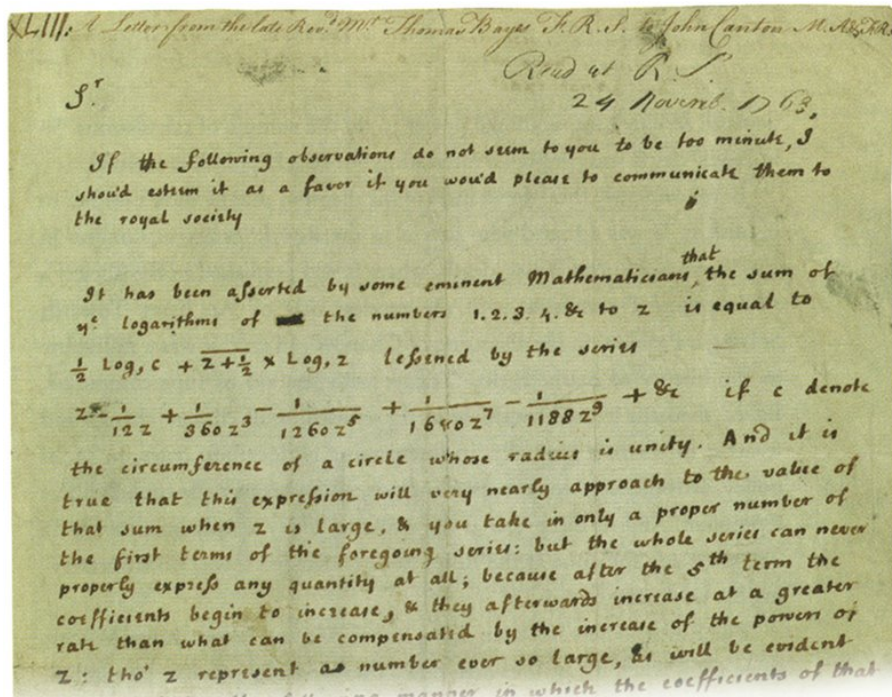 XLIII: A Letter from the late Revd. Mr. Thomas Bayes F. R. S. to John Canton M. A. & F. R. S.
Read at R. S.
24 Novemb. 1763,
Sr.
If the following observations do not seem to you to be too minute, I
shou'd esteem it as a favor if you wou'd please to communicate them to
the royal society
It has been asserted by some eminent Mathematicians that the sum of
ye logarithms of the numbers 1. 2. 3. 4. &c to z is equal to
½ Log, c + z+½ × Log, z lessened by the series
z - 1/12z + 1/360z³ - 1/1260z⁵ + 1/1680z⁷ - 1/1188z⁹ + &c if c denote
the circumference of a circle whose radius is unity. And it is
true that this expression will very nearly approach to the value of
that sum when z is large, & you take in only a proper number of
the first terms of the foregoing series: but the whole series can never
properly express any quantity at all; because after the 5th term the
coefficients begin to increase, & they afterwards increase at a greater
rate than what can be compensated by the increase of the powers of
z: tho' z represent a number ever so large, as will be evident
following manner in which the coefficients of that